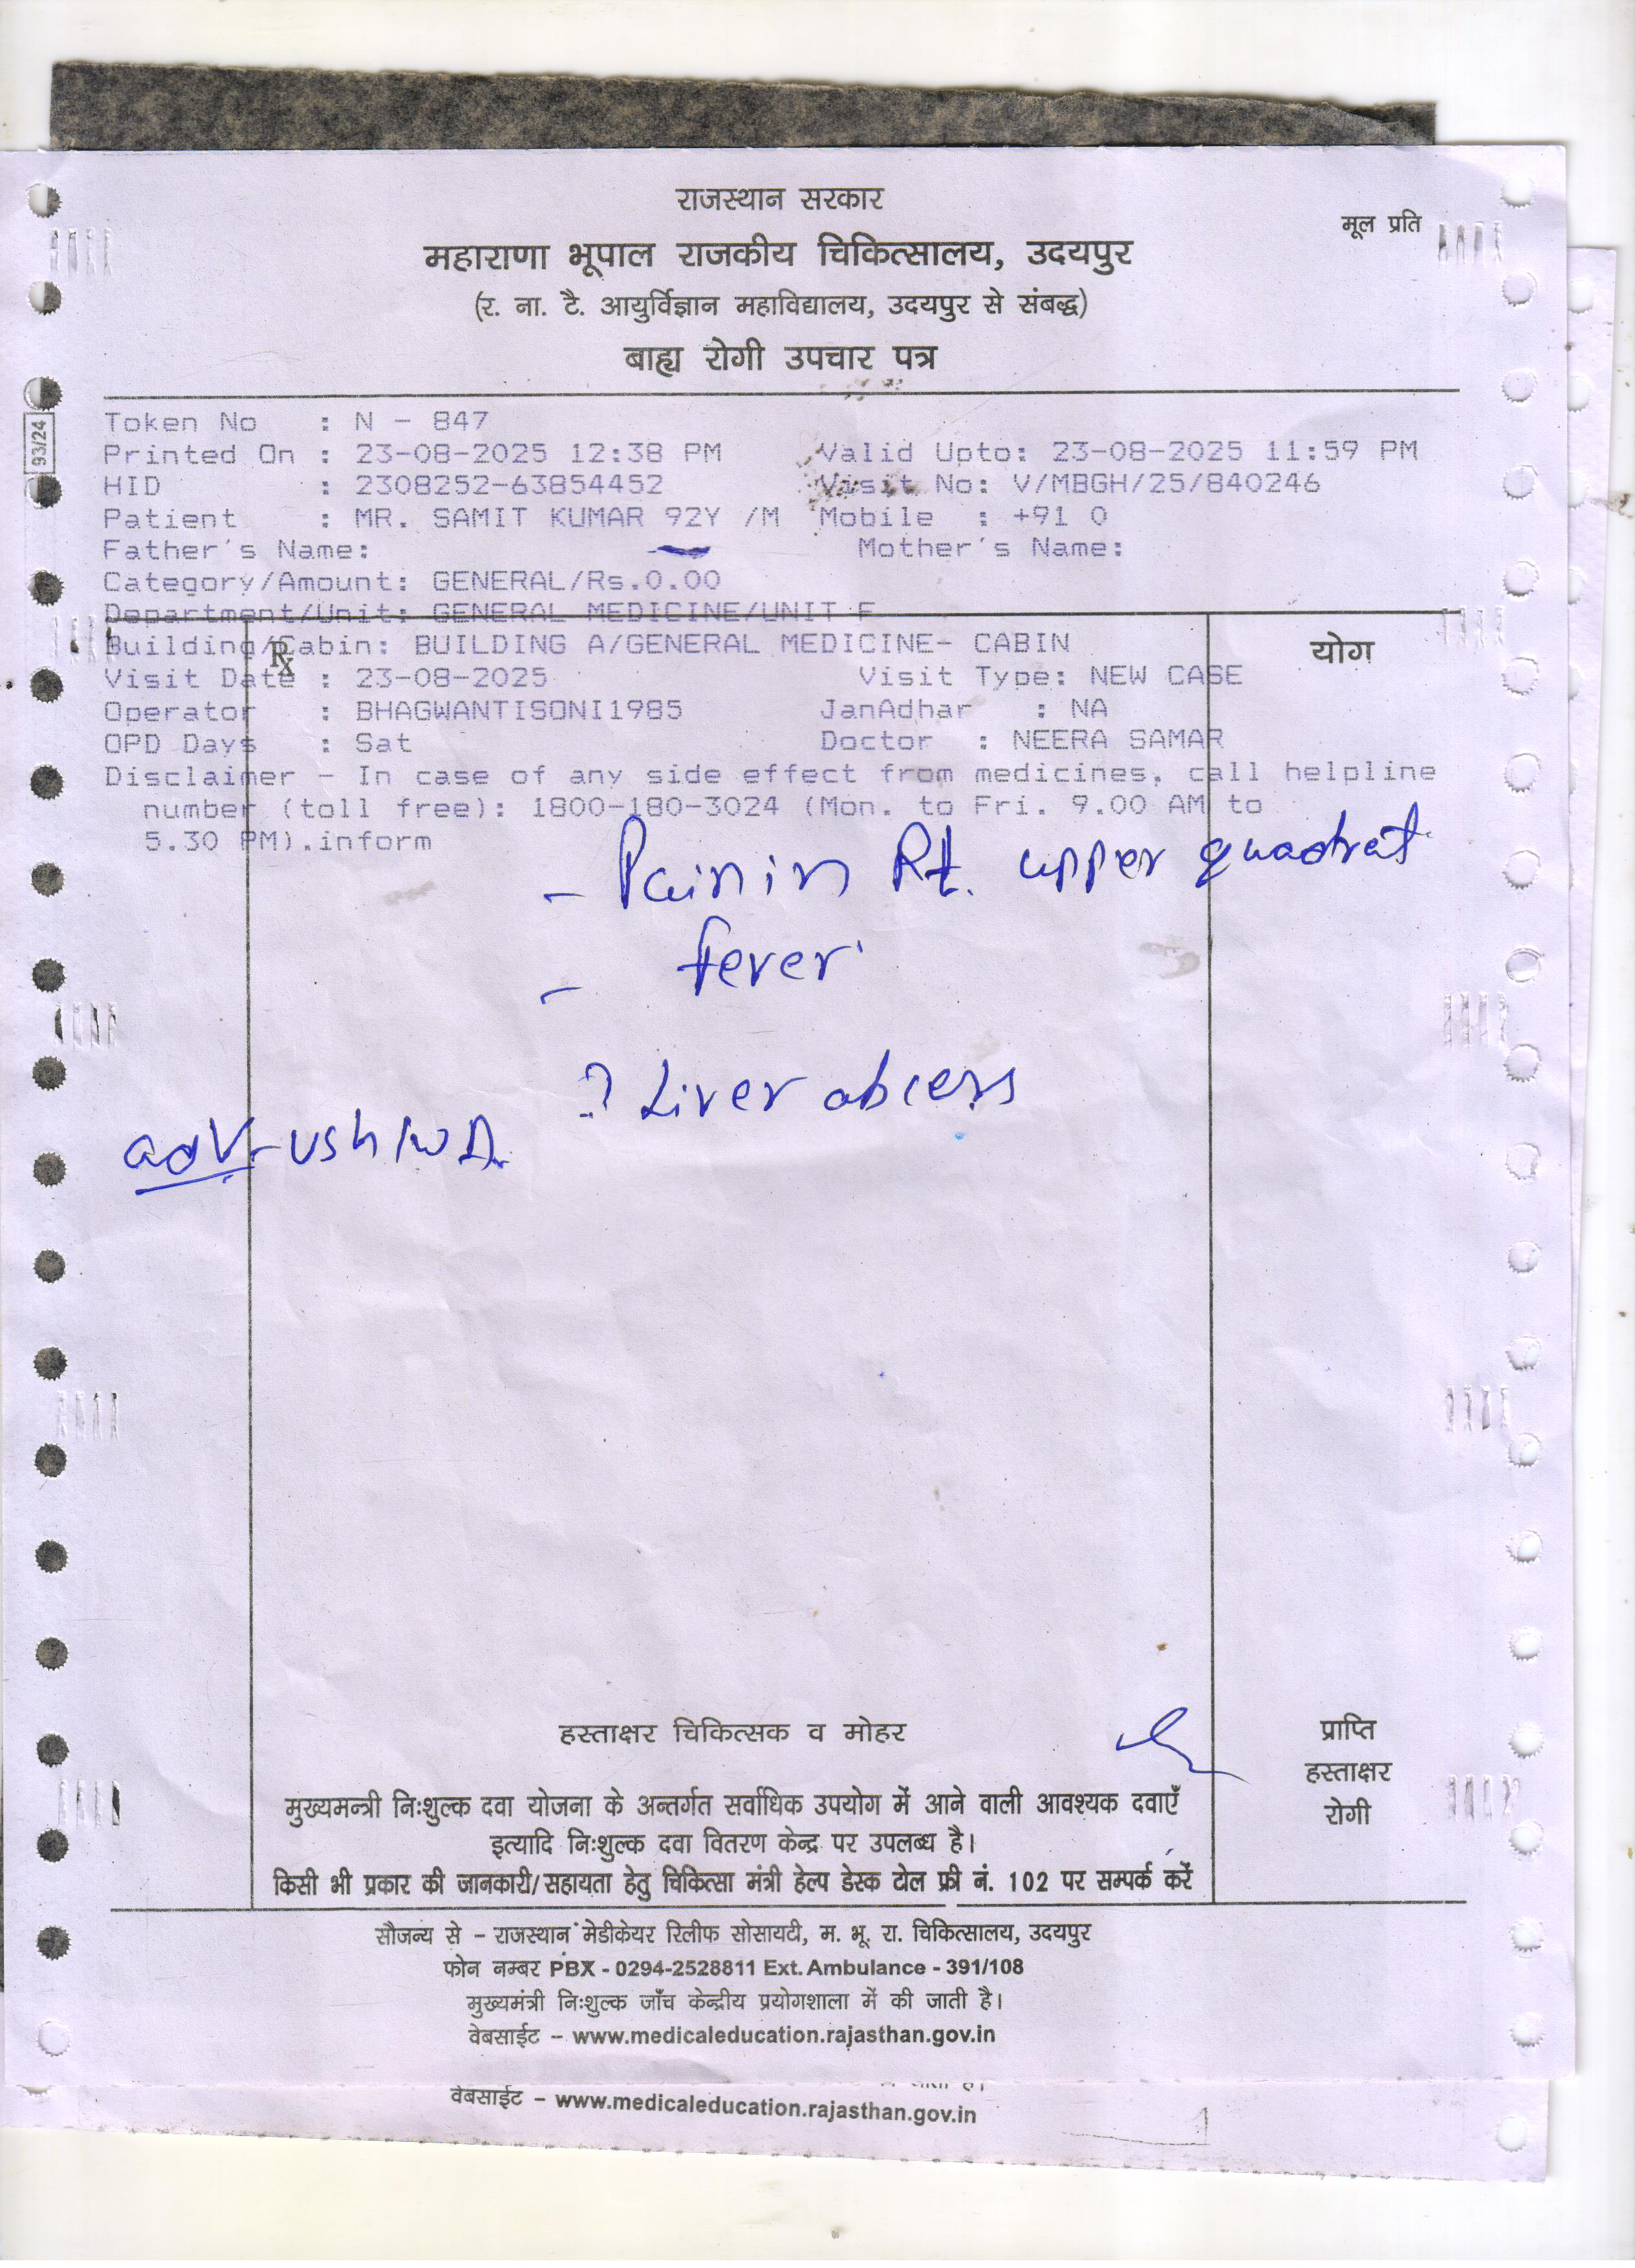 राजस्थान सरकार
मूल प्रति
महाराणा भूपाल राजकीय चिकित्सालय, उदयपुर
(र. ना. टै. आयुर्विज्ञान महाविद्यालय, उदयपुर से संबद्ध)
बाह्य रोगी उपचार पत्र
93/24
Token No : N - 847
Printed On : 23-08-2025 12:38 PM Valid Upto: 23-08-2025 11:59 PM
HID : 2308252-63854452 Visit No: V/MBGH/25/840246
Patient : MR. SAMIT KUMAR 92Y /M Mobile : +91 0
Father's Name: Mother's Name:
Category/Amount: GENERAL/Rs.0.00
Department/Unit: GENERAL MEDICINE/UNIT F
Building/Cabin: BUILDING A/GENERAL MEDICINE- CABIN
Rx
योग
Visit Date : 23-08-2025 Visit Type: NEW CASE
Operator : BHAGWANTISONI1985 JanAdhar : NA
OPD Days : Sat Doctor : NEERA SAMAR
Disclaimer - In case of any side effect from medicines, call helpline
number (toll free): 1800-180-3024 (Mon. to Fri. 9.00 AM to
5.30 PM).inform
- Pain in Rt. upper quadrat
- fever
? Liver abcess
adv - USh
हस्ताक्षर चिकित्सक व मोहर
प्राप्ति
हस्ताक्षर
रोगी
मुख्यमन्त्री निःशुल्क दवा योजना के अन्तर्गत सर्वाधिक उपयोग में आने वाली आवश्यक दवाएँ
इत्यादि निःशुल्क दवा वितरण केन्द्र पर उपलब्ध है।
किसी भी प्रकार की जानकारी/सहायता हेतु चिकित्सा मंत्री हेल्प डेस्क टोल फ्री नं. 102 पर सम्पर्क करें
सौजन्य से - राजस्थान मेडीकेयर रिलीफ सोसायटी, म. भू. रा. चिकित्सालय, उदयपुर
फोन नम्बर PBX - 0294-2528811 Ext. Ambulance - 391/108
मुख्यमंत्री निःशुल्क जाँच केन्द्रीय प्रयोगशाला में की जाती है।
वेबसाईट - www.medicaleducation.rajasthan.gov.in
वेबसाईट - www.medicaleducation.rajasthan.gov.in